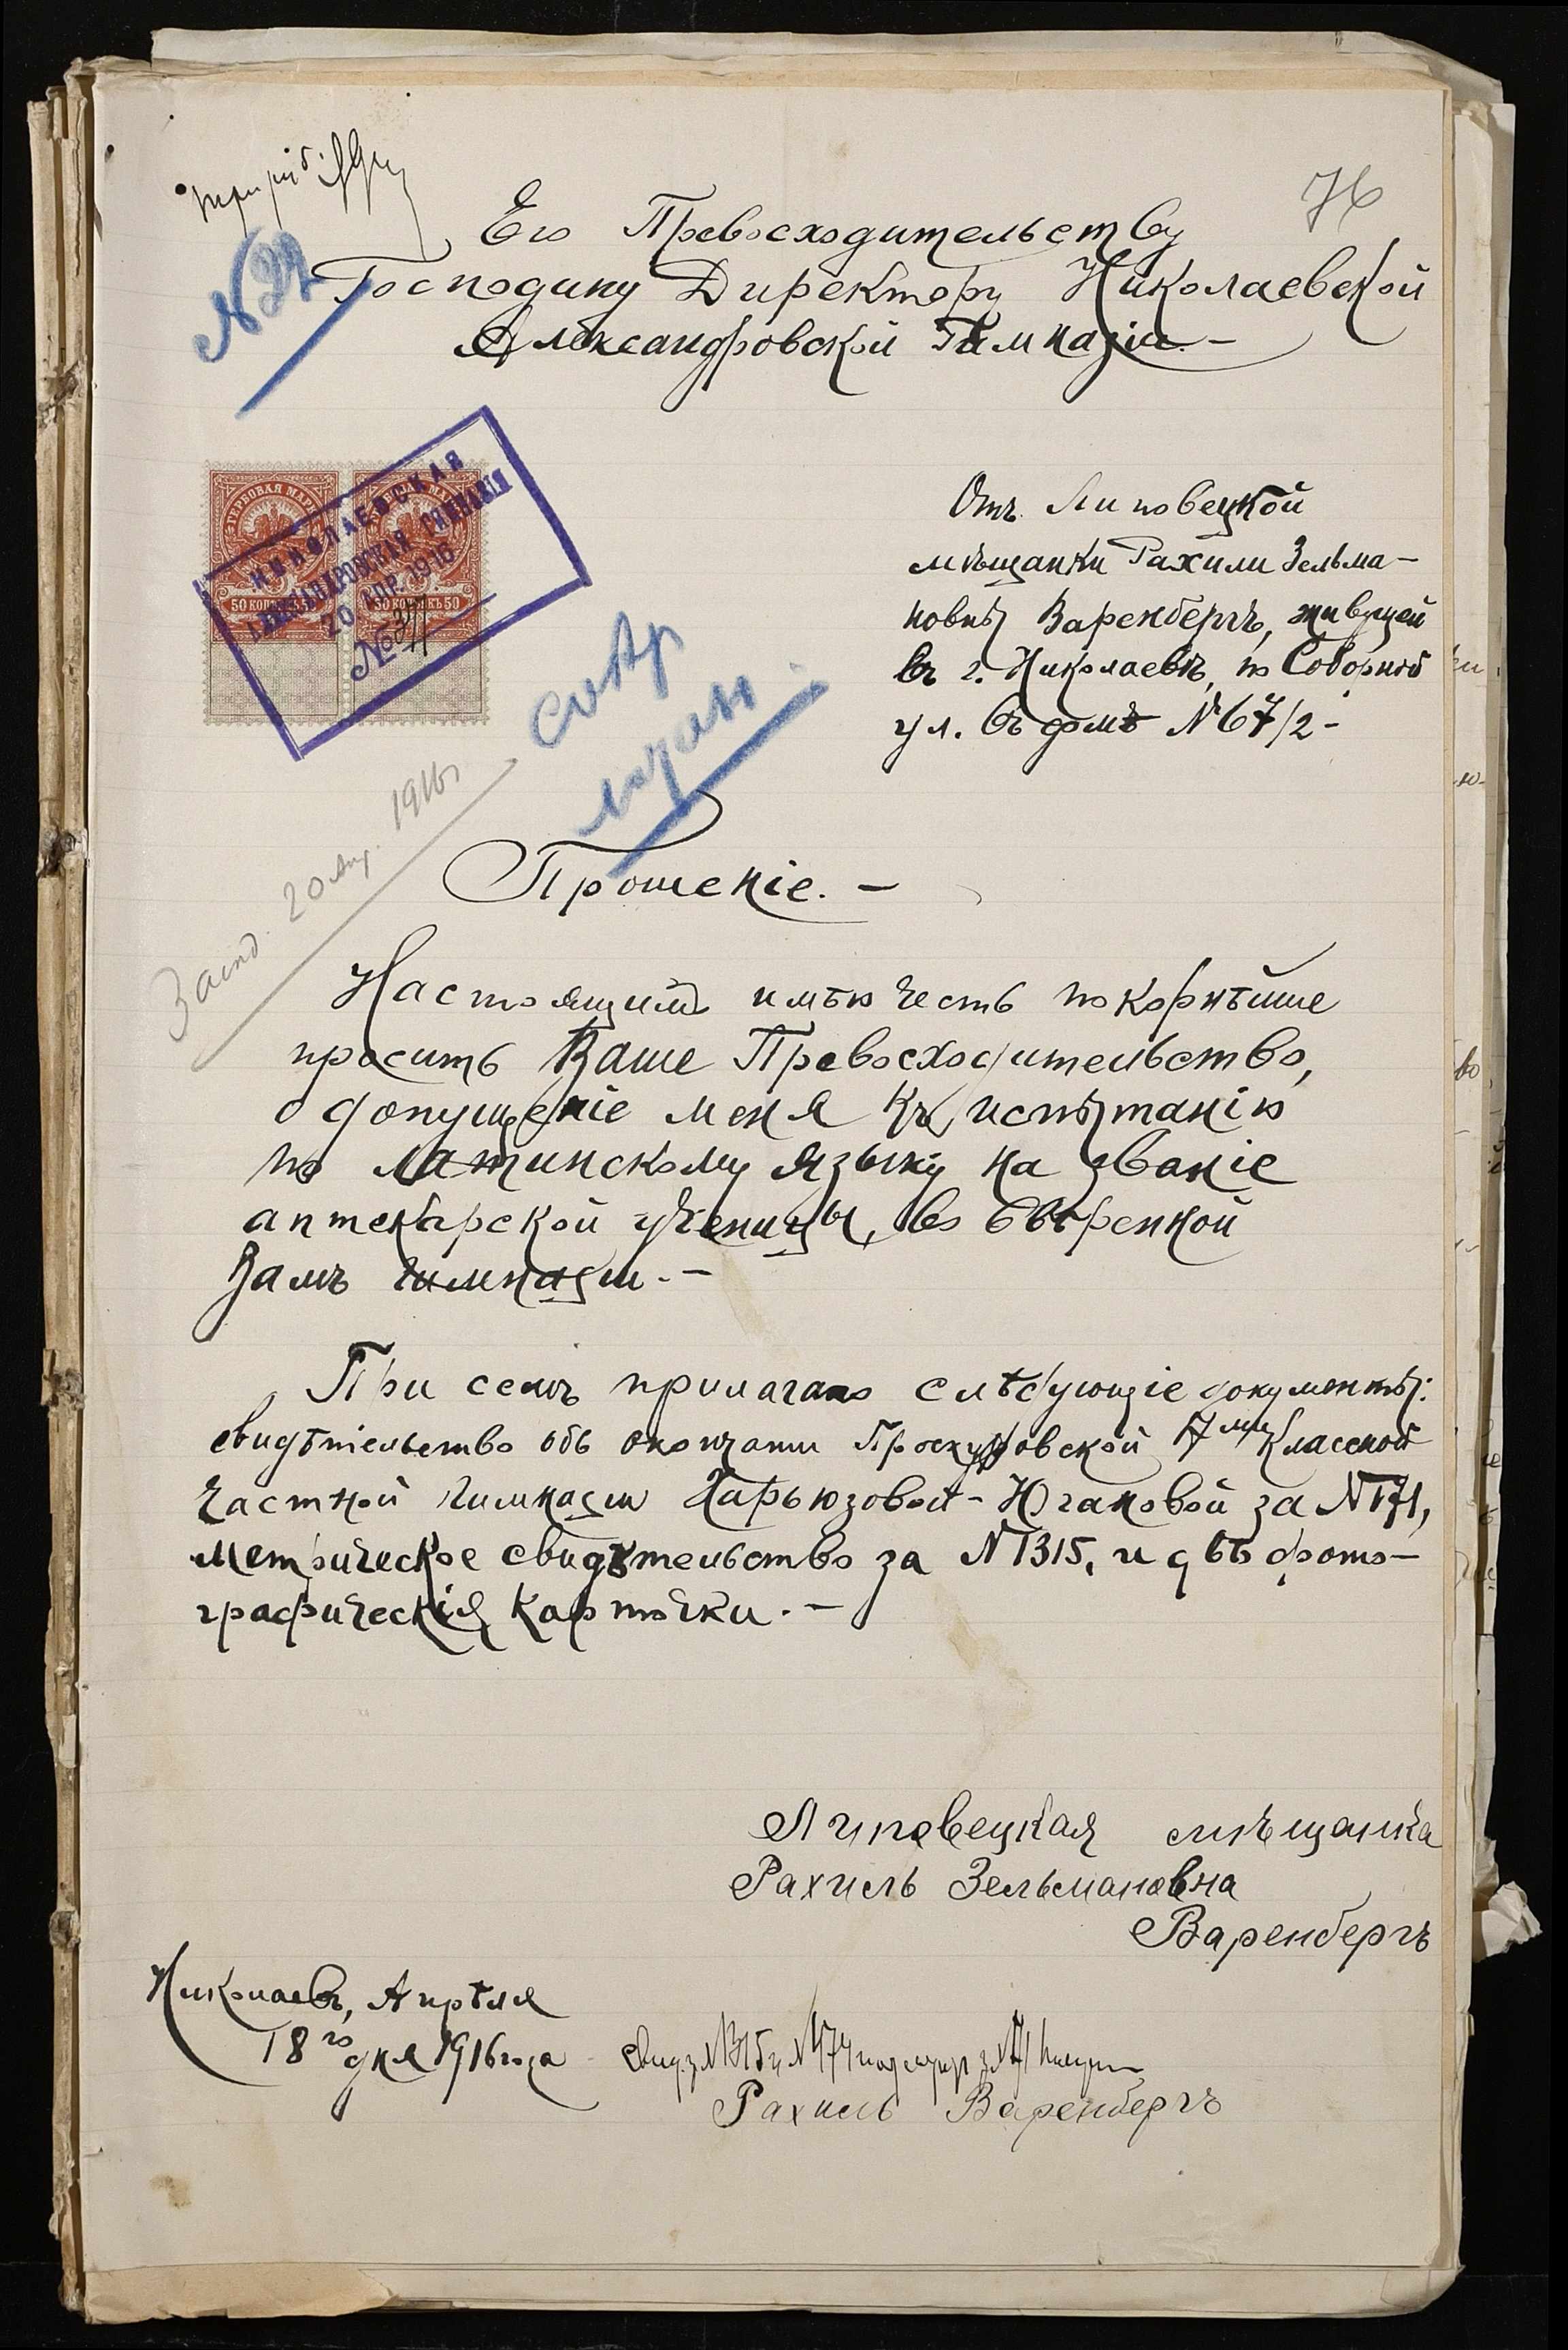 76
Его Превосходительству
Господину Директору Николаевской
Александровской Гимназіи.-
№ 22
ГЕРБОВАЯ МАРКА
50 КОПѢЕКЪ 50
50 КОПѢЕКЪ 50
НИКОЛАЕВСКАЯ
АЛЕКСАНДРОВСКАЯ ГИМНАЗІЯ
20 АПР. 1916
№
Отъ Липовецкой
мѣщанки Рахили Зельма-
новны Варенбергъ, живущей
въ г. Николаевѣ, по Соборной
ул. въ домѣ № 67/2-
20 Апр. 1916 г.
Прошеніе.-
Настоящимъ имѣю честь покорнѣйше
просить Ваше Превосходительство,
о допущеніе меня къ испытанію
по латинскому языку на званіе
аптекарской ученицы, во ввѣренной
Вамъ гимназіи.-
При семъ прилагаю слѣдующіе документы:
свидѣтельство объ окончаніи Проскуровской 7ми классной
частной гимназіи Харьюзовой-Югановой за № 171,
метрическое свидѣтельство за № 1315, и двѣ фото-
графическія карточки.-
Липовецкая мѣщанка
Рахиль Зельмановна
Варенбергъ
Николаевъ, Апрѣля
18го дня 1916 года
Рахиль Варенбергъ